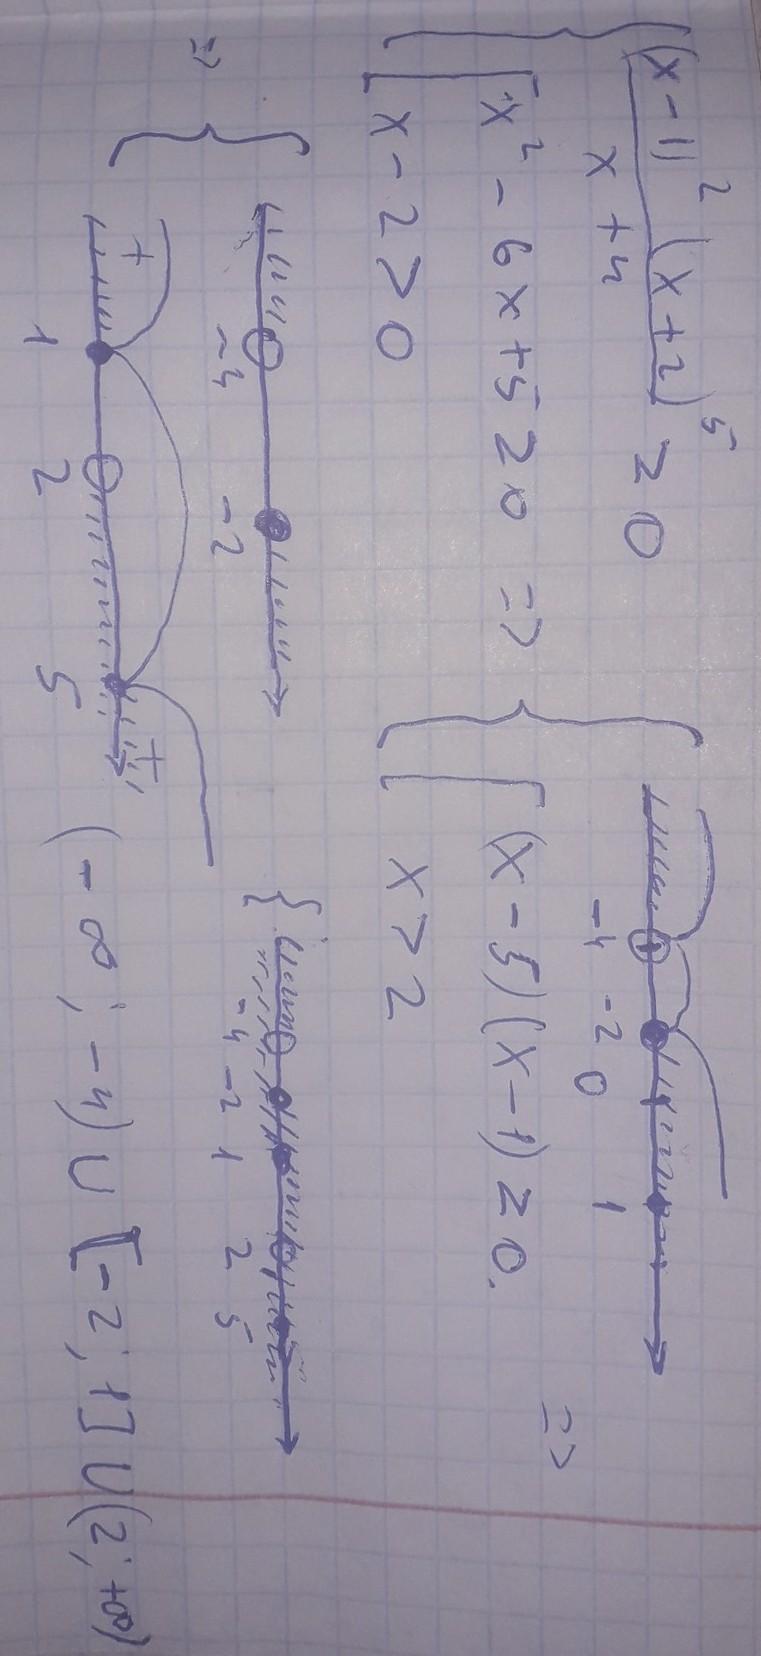 (x-1)² (x+2)⁵ ≥ 0
x+4
x² - 6x + 5 ≥ 0 =>
x - 2 > 0
-4 -2 0 1
(x-5)(x-1) ≥ 0.
x > 2
=>
=>
-4 -2
+ +
1 2 5
-4 -2 1 2 5
(-∞; -4) ∪ [-2; 1] ∪ (2; +∞)